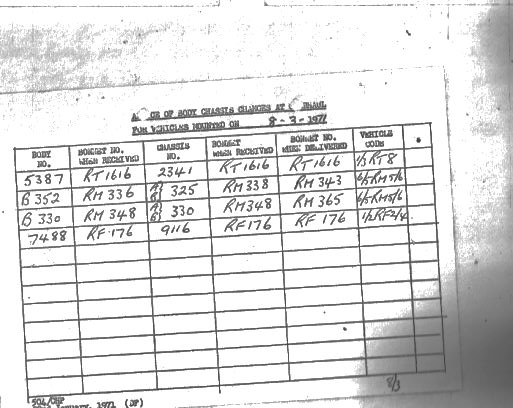 OF BODY CHASSIS CHANGES AT
FOR VEHICLES MOUNTED ON 8-3-1971
BODY NO. BONNET NO. WHEN RECEIVED CHASSIS NO. BONNET WHEN RECEIVED BONNET NO. WHEN DELIVERED VEHICLE CODE
5387 RT1616 2341 RT1616 RT1616 1/3RT8
B352 RM336 325 RM338 RM343 6/5RM5/6
B330 RM348 330 RM348 RM365 6/5RM5/6
7488 RF176 9116 RF176 RF 176 1/2RF2/4
8/3
504/CHP
January, 1971 (DP)